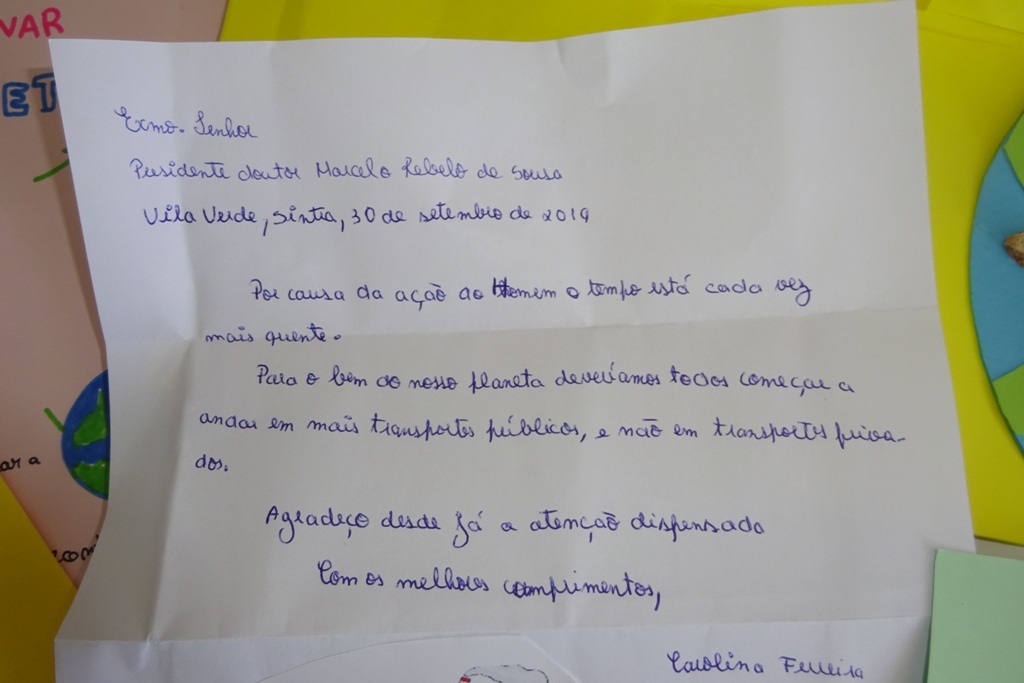 VAR
ET
Exmo. Senhor
Presidente doutor Marcelo Rebelo de Sousa
Vila Verde, Sintra, 30 de setembro de 2019
Por causa da ação do Homem o tempo está cada vez
mais quente.
Para o bem do nosso planeta deveríamos todos começar a
andar em mais transportes públicos, e não em transportes priva-
dos.
ar a
Agradeço desde já a atenção dispensada
Com os melhores comprimentos,
Carolina Ferreira